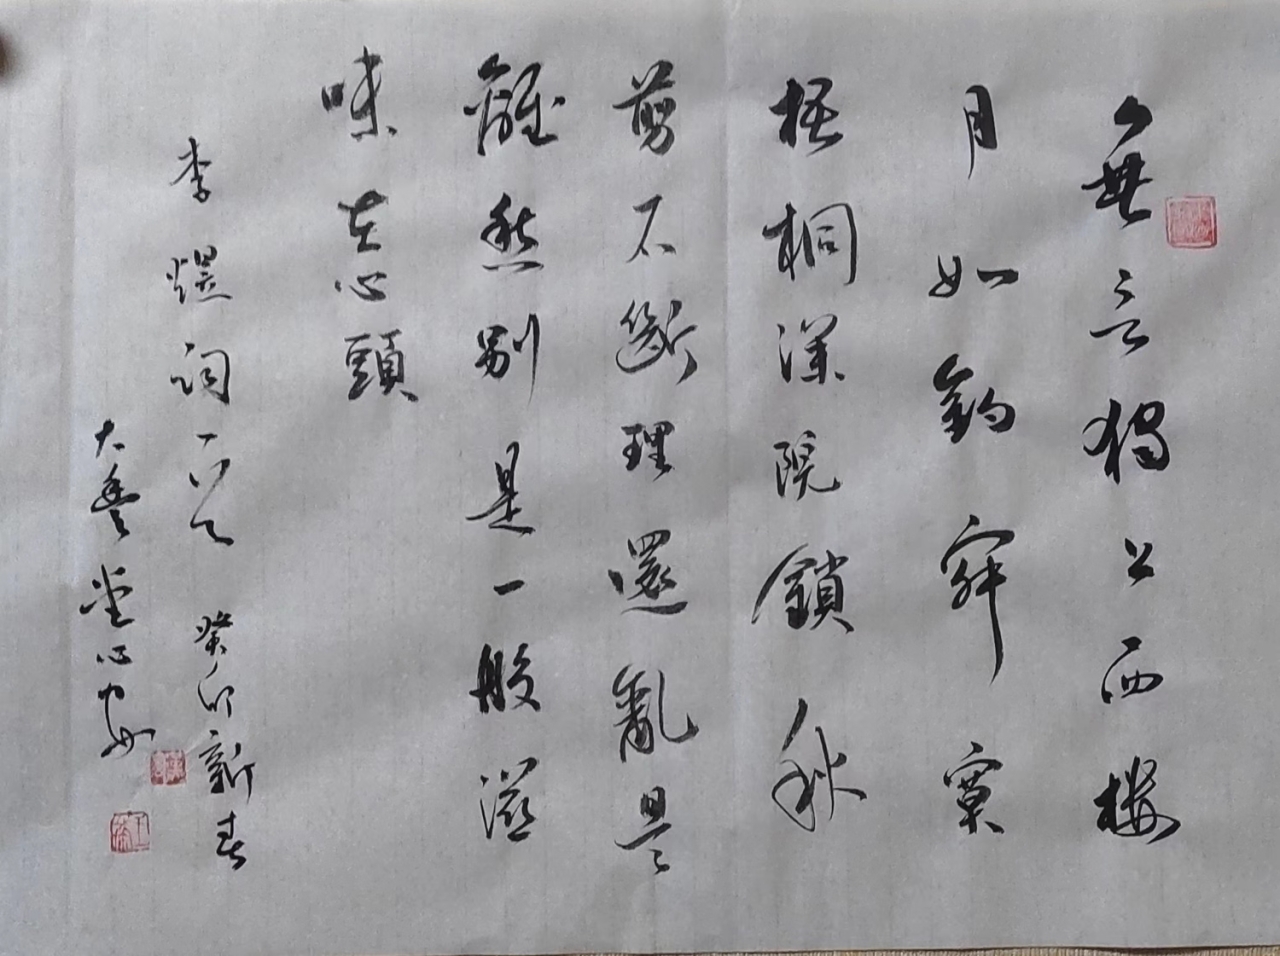 無言獨上西樓
月如鈎寂寞
梧桐深院鎖秋
剪不斷理還亂是
離愁別是一般滋
味在心頭
李煜詞一首 癸卯新春
大 堂心